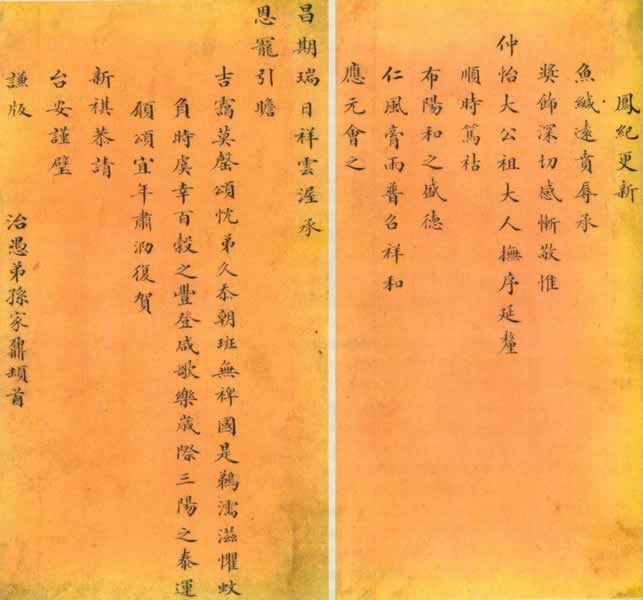 鳳紀更新
魚緘遠賁辱承
獎飾深切感慚敬惟
仲怡大公祖大人撫序延釐
順時篤祜
布陽和之盛德
仁風膏雨普召祥和
應元會之
昌期瑞日祥雲渥承
恩寵引瞻
吉靄莫罄頌忱弟久忝朝班無裨國是鵜濡滋懼蚊
負時虞幸百穀之豐登咸歌樂歲際三陽之泰運
願頌宜年肅泐復賀
新祺恭請
台安謹璧
謙版
治愚弟孫家鼐頓首